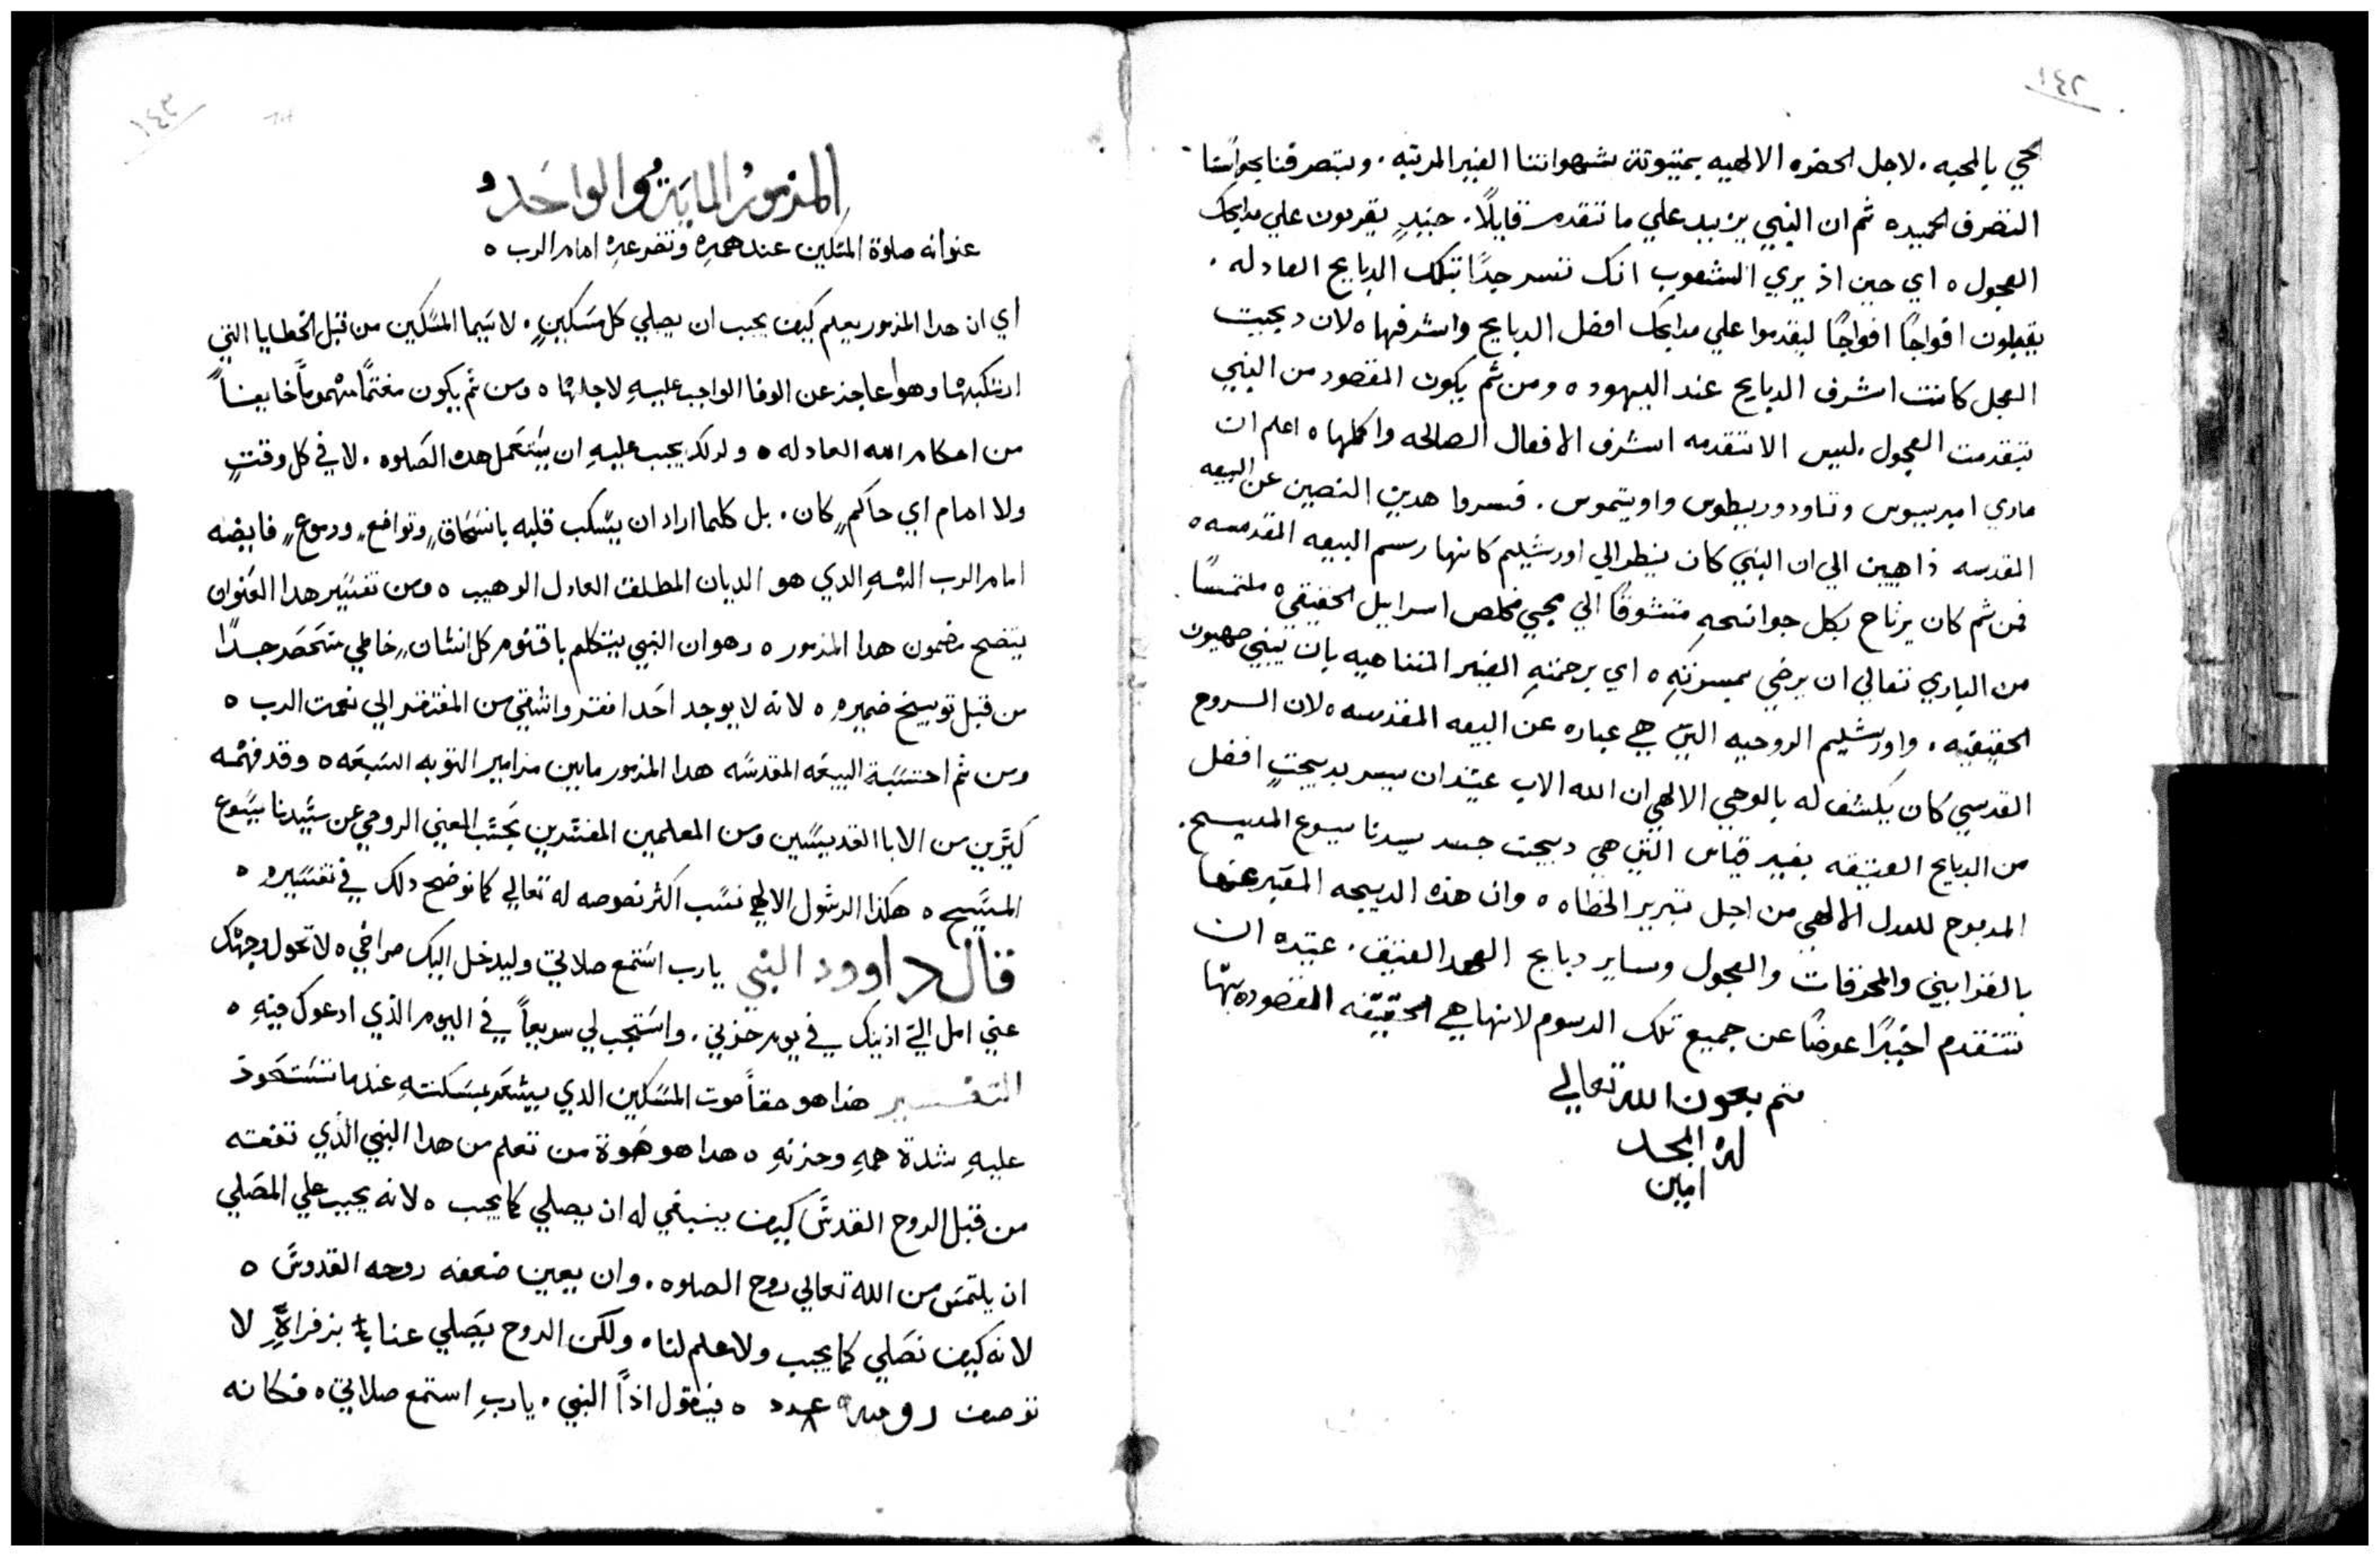 ١٤٢
الحي بالمحبه. لاجل الحضره الالهيه بميتوتة شهواتنا الغير المرتبه. وبتصرفنا بحواسنا
التصرف الحميد ٥ ثم ان النبي يزيد علي ما تقدم قايلاً. حينيدٍ يقربون علي مدابحك
العجول ٥ اي حين اذ يري الشعوب انك تنسر جدًا بتلك الدبايح العادله.
يقبلون افواجًا افواجًا ليقدموا علي مدابحك افضل الدبايح واشرفها ٥ لان دبيحت
العجل كانت اشرف الدبايح عند اليهود ٥ ومن ثم يكون المقصود من النبي
بتقدمت العجول. ليس الا تقدمه اشرف الافعال الصالحه واكملها ٥ اعلم ان
ماري امبرسيوس وتاودوريطوس واوتيموس. فسروا هدين النصين عن البيعه
المقدسه داهبين الي ان النبي كان ينظر الي اورشليم كانها رسم البيعه المقدسه ٥
فمن ثم كان يرتاح بكل جوانحهِ متشوقًا الي مجي مخلص اسراييل الحقيقي ٥ ملتمسًا
من الباري تعالي ان يرضي بمسرتهِ ٥ اي برحمتهِ الغير المتناهيه بان تبني صهيون
الحقيقيه. واورشليم الروحيه التي هي عباره عن البيعه المقدسه ٥ لان الروح
القدسي كان يكشف له بالوحي الالهي ان الله الاب عتيد ان يسر بدبيحتٍ افضل
من الدبايح العتيقه بغير قياس التي هي دبيحت جسد سيدنا يسوع المسيح.
المدبوح للعدل الالهي من اجل تبرير الخطاه ٥ وان هذه الدبيحه المعبر عنها
بالقرابين والمحرقات والعجول وساير دبايح العهد العتيق. عتيده ان
تتقدم اخيرًا عوضًا عن جميع تلك الرسوم لانها هي الحقيقه المقصوده بها
تم بعون الله تعالي
له المجد
امين
١٤٣
المزمور المايَة والواحَد
عنوانه صلوة المسكين عند همهِ وتضرعهِ امام الرب ٥
اي ان هدا المزمور يعلم كيف يجب ان يصلي كل مسَكينٍ ٥ لا سَيما المسَكين من قبل الخطايا التي
ارتكبها وهو عاجز عن الوفا الواجب عليهِ لاجلها ٥ ومن ثم يكون مغتمًا مهمومًا خايفًا
من احكام الله العادله ٥ ولدلك يجب عليهِ ان يسَتعمل هده الصَلوه. لا في كل وقتٍ
ولا امام اي حاكمٍ كان. بل كلما اراد ان يسَكب قلبه بانسَحاقٍ وتواضعٍ ودموعٍ فايضه
امام الرب الالهِ الدي هو الديان المطلق العادل الرهيب ٥ ومن تفسَير هدا العَنوان
يتضح مضمون هدا المزمور ٥ وهو ان النبي يتكلم باقنوم كل انسَانٍ خاطي متحَصَر جدًا
من قبل توبيخ ضميرهِ ٥ لانه لا يوجد احَدا افقر واشقي من المفتقر الي نعمت الرب ٥
ومن ثم احتسَبة البيعَه المقدسَه هدا المزمور مابين مزامير التوبه السَبعَه ٥ وقد فهمَه
كثيرين من الابا القديسَين ومن المعلمين المفسَرين بحسَب المعني الروحي عن سَيدنا يسَوع
المسَيح ٥ هكذا الرسَول الالهي نسَب اكثر نصوصه له تعالي كما نوضح دلك في تفسَيرهِ ٥
قال داوود النبي يا رب استمع صلاتي وليدخل اليك صراخي ٥ لا تحول وجهك
عني امل اليّ ادنيك في يوم حزني. واسَتجب لي سريعاً في اليوم الذي ادعوك فيهِ ٥
التفسير هذا هو حقاً صوت المسَكين الدي يشعَر بمسَكنتهِ عندما تسَتحَود
عليهِ شدة همهِ وحزنهِ ٥ هدا هو صَوة من تعلم من هدا النبي الذي تفقه
من قبل الروح القدسَ كيف ينبغي له ان يصلي كما يجب ٥ لانه يجب علي المصَلي
ان يلتمسَ من الله تعالي روح الصلوه. وان يعين ضعفه روحه القدوسَ ٥
لانه كيف نصَلي كما يجب ولا علم لنا ٥ ولكن الروح يصَلي عنا بزفراةٍ لا
توصف روميه عدد ٨ ٥ فيقول اذاً النبي. يا ربِ استمع صلاتي ٥ فكانه